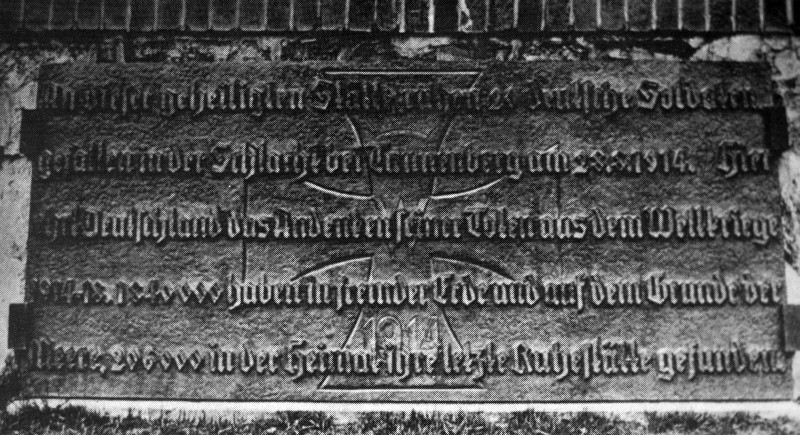 An dieser geheiligten Stätte ruhen 20 deutsche Soldaten
gefallen in der Schlacht bei Tannenberg am 28.8.1914. Hier
ehrt Deutschland das Andenken seiner Toten aus dem Weltkriege
1914-18. haben in fremder Erde und auf dem Grunde der
Meere, 206000 in der Heimat ihre letzte Ruhestätte gefunden.
1914